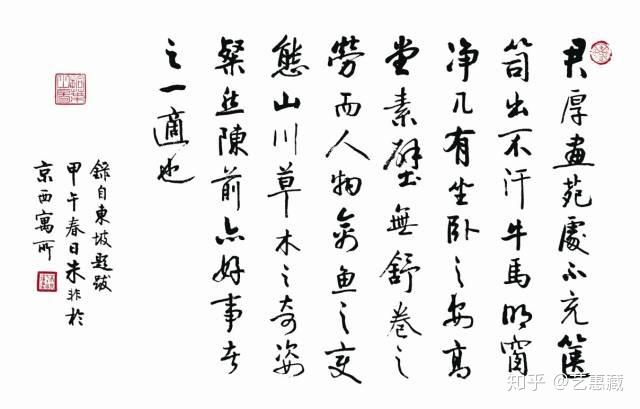 君厚畫苑處不充篋
笥出不汗牛馬明窗
净几有坐卧之安高
堂素壁無舒卷之
勞而人物禽魚之变
態山川草木之奇姿
粲然陳前亦好事者
之一適也
錄自東坡題跋
甲午春日朱非於
京西寓所
知乎 @艺惠藏